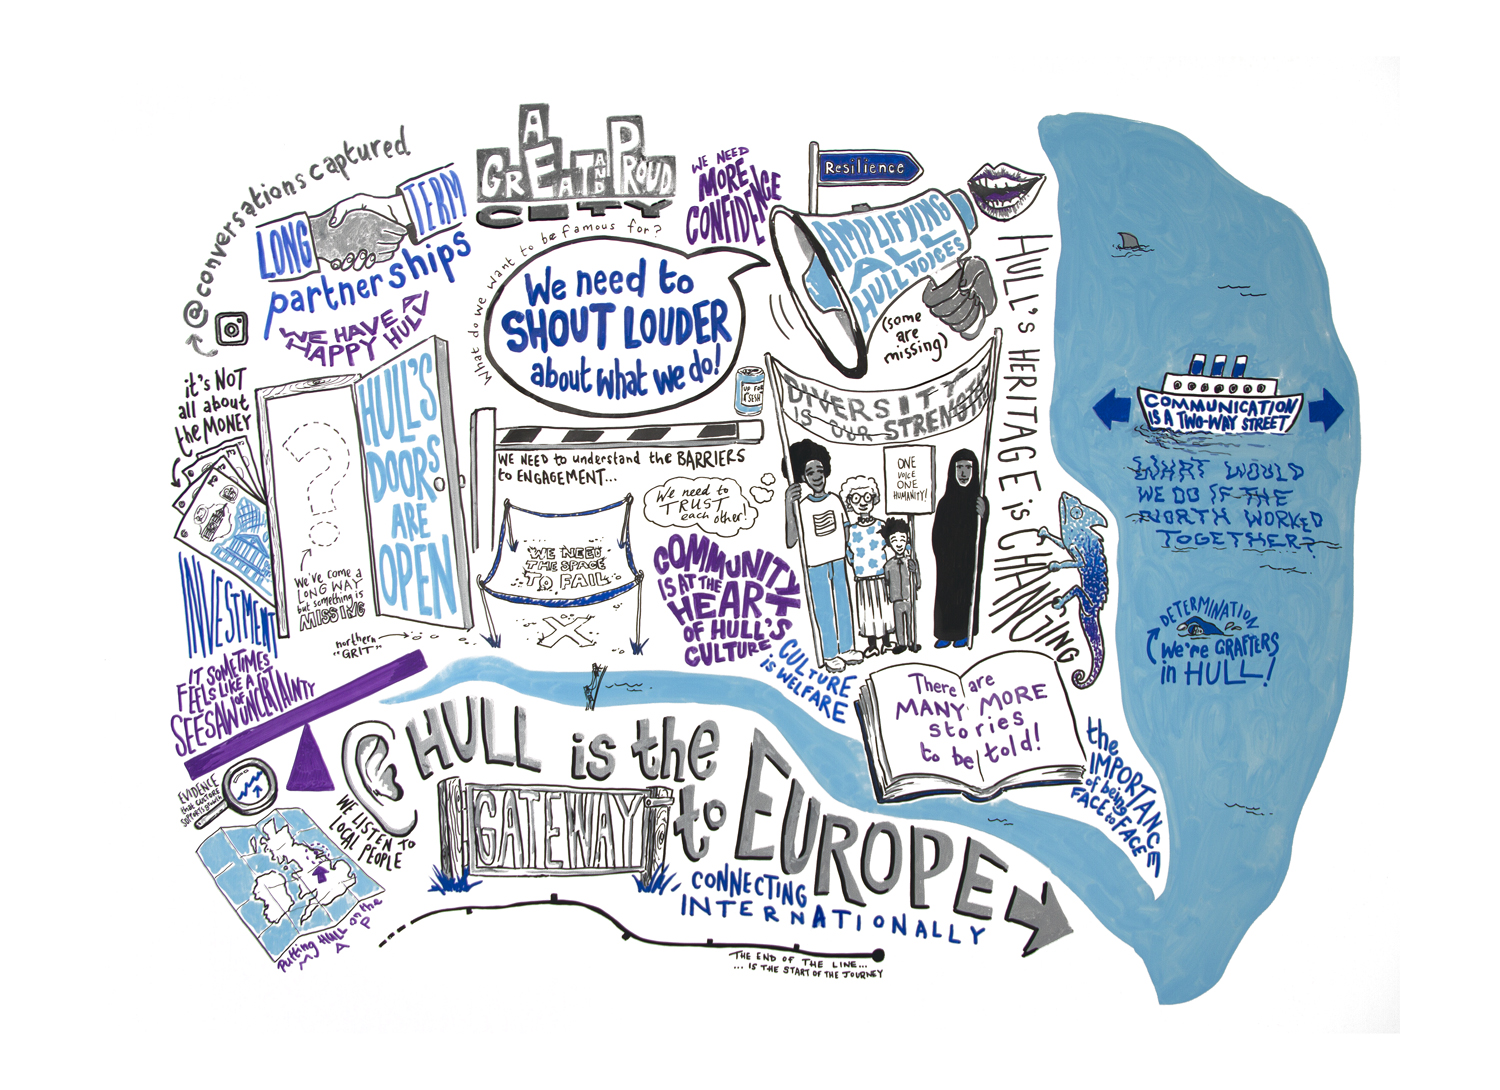 @conversations captured
LONG
TERM
partnerships
WE HAVE A
HAPPY HULL
it's NOT
all about
the MONEY
INVESTMENT
A
GREAT AND PROUD
CITY
What do we want to be famous for?
We need to
SHOUT LOUDER
about what we do!
WE NEED
MORE
CONFIDENCE
Resilience
AMPLIFYING
ALL
HULL VOICES
(some
are
missing)
HULL'S HERITAGE is CHANGING
HULL'S
DOORS
ARE
OPEN
?
We've come a
LONG WAY
but something is
MISSING
northern
"GRIT"
UP FOR
SESH
WE NEED to understand the BARRIERS
to ENGAGEMENT...
We need to
TRUST
each other!
WE NEED
THE SPACE
TO FAIL
X
COMMUNITY
IS AT THE
HEART
OF HULL'S
CULTURE
CULTURE
is WELFARE
DIVERSITY
IS OUR STRENGTH
ONE
VOICE
ONE
HUMANITY!
There are
MANY MORE
stories
to be told!
the
IMPORTANCE
of being
FACE to FACE
COMMUNICATION
IS A TWO-WAY STREET
WHAT WOULD
WE DO IF THE
NORTH WORKED
TOGETHER?
DETERMINATION
We're GRAFTERS
in HULL!
IT SOMETIMES
FEELS LIKE A BIT
OF
SEESAW UNCERTAINTY
EVIDENCE
that CULTURE
SUPPORTS growth
WE LISTEN TO
LOCAL PEOPLE
Putting HULL on the
MAP
HULL is the
GATEWAY
to EUROPE
CONNECTING
INTERNATIONALLY
THE END OF THE LINE...
... IS THE START OF THE JOURNEY